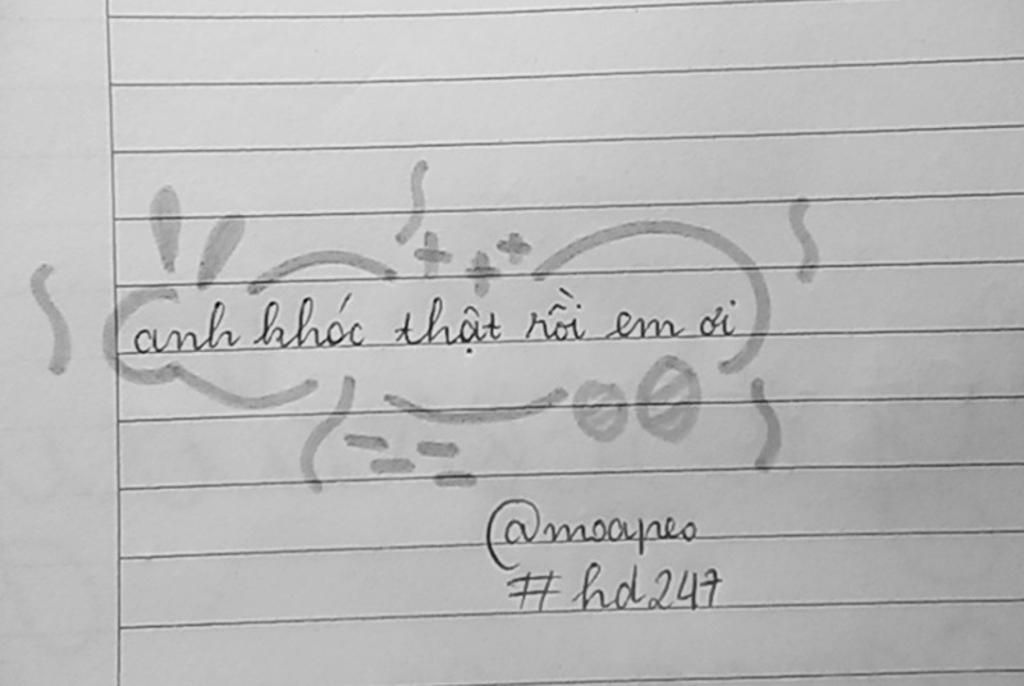 anh khóc thật rồi em ơi
@moapeo
#hd247